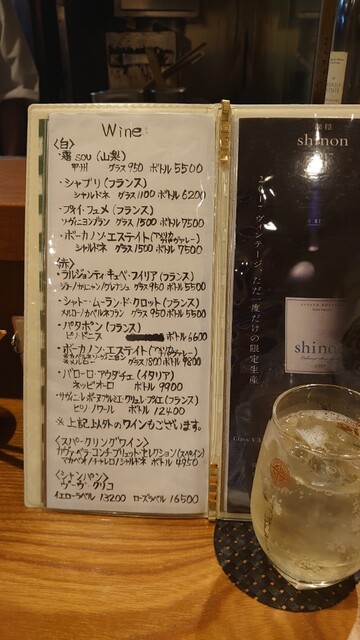 Wine
〈白〉
・霧SOU(山梨)
甲州 グラス950 ボトル5500
・シャブリ(フランス)
シャルドネ グラス1100 ボトル6200
・プイィ・フュメ(フランス)
ソヴィニヨンブラン グラス1300 ボトル7500
・ボーカノン・エステイト
シャルドネ グラス1500 ボトル7500
〈赤〉
・ラルジョンティ キュベ・フィリア(フランス)
グラス950 ボトル5500
・シャトー・ムーランド・クロット(フランス)
メルロー/カベルネフラン グラス950 ボトル5500
・パタポン(フランス)
ピノ・ドニス ボトル6600
・ボーカノン・エステイト
メルロー グラス1800 ボトル9800
・バローロ・アウダチェ(イタリア)
ネッビオーロ ボトル9900
(フランス)
ピノ・ノワール ボトル12400
※上記以外のワインもございます。
〈スパークリングワイン〉
カヴァ・ベラ・コンチ ブリュット・セレクション(スペイン)
マカベオ/チャレロ/シャルドネ ボトル4950
〈シャンパン〉
ヴーヴ・クリコ
イエローラベル 13200 ローズラベル 16500
shinon
ヴィンテージ、ただ一度だけの限定生産
shino